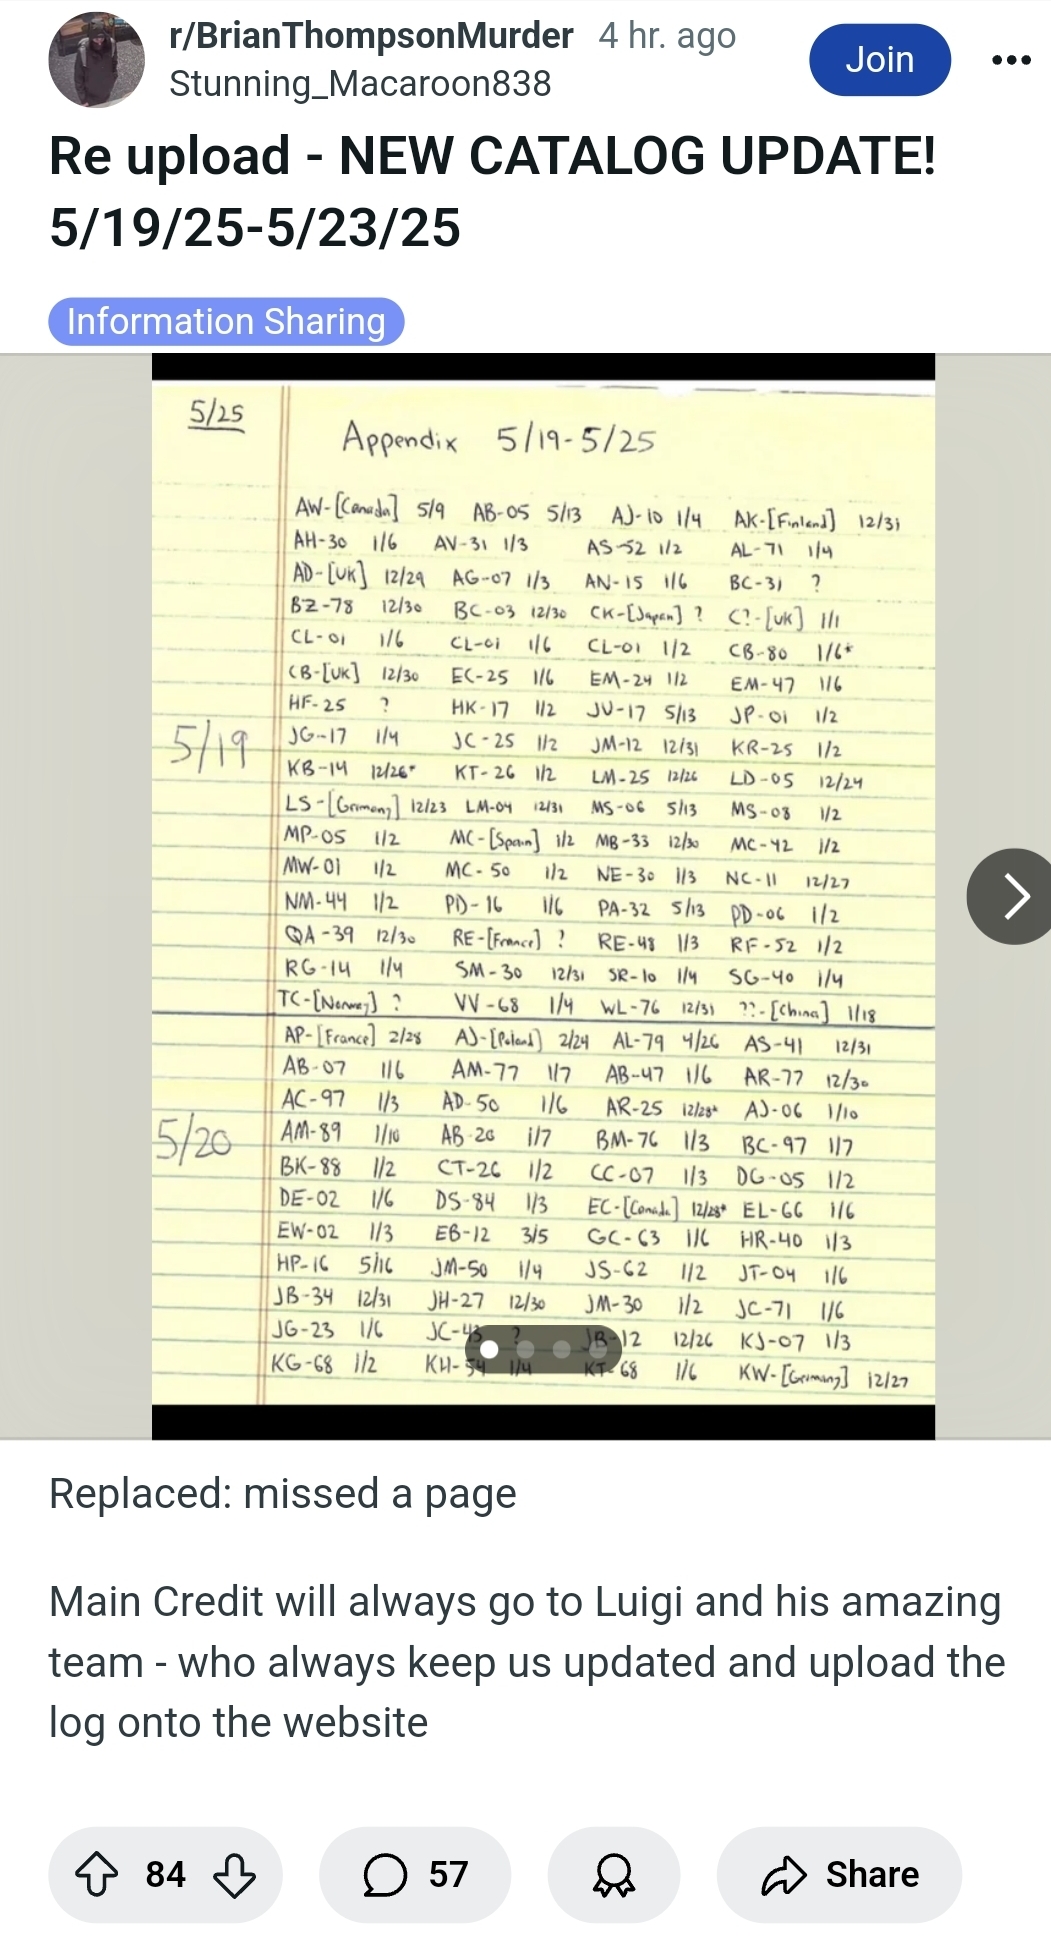 r/BrianThompsonMurder 4 hr. ago
Stunning_Macaroon838
Join
Re upload - NEW CATALOG UPDATE!
5/19/25-5/23/25
Information Sharing
5/25
Appendix 5/19-5/25
AW-[Canada] 5/9 AB-05 5/13 AJ-10 1/4 AK-[Finland] 12/31
AH-30 1/6 AV-31 1/3 AS-52 1/2 AL-71 1/4
AD-[UK] 12/29 AG-07 1/3 AN-15 1/6 BC-31 ?
BZ-78 12/30 BC-03 12/30 CK-[Japan] ? C?-[UK] 1/1
CL-01 1/6 CL-01 1/6 CL-01 1/2 CB-80 1/6*
CB-[UK] 12/30 EC-25 1/6 EM-24 1/2 EM-47 1/6
HF-25 ? HK-17 1/2 JV-17 5/13 JP-01 1/2
5/19
JG-17 1/4 JC-25 1/2 JM-12 12/31 KR-25 1/2
KB-14 12/26* KT-26 1/2 LM-25 12/26 LD-05 12/24
LS-[Germany] 12/23 LM-04 12/31 MS-06 5/13 MS-08 1/2
MP-05 1/2 MC-[Spain] 1/2 MB-33 12/30 MC-42 1/2
MW-01 1/2 MC-50 1/2 NE-30 1/3 NC-11 12/27
NM-44 1/2 PD-16 1/6 PA-32 5/13 PD-06 1/2
QA-39 12/30 RE-[France] ? RE-48 1/3 RF-52 1/2
RG-14 1/4 SM-30 12/31 SR-10 1/4 SG-40 1/4
TC-[Norway] ? VV-68 1/4 WL-76 12/31 ??-[China] 1/18
AP-[France] 2/28 AJ-[Poland] 2/24 AL-79 4/26 AS-41 12/31
AB-07 1/6 AM-77 1/7 AB-47 1/6 AR-77 12/30
AC-97 1/3 AD-50 1/6 AR-25 12/28* AJ-06 1/10
5/20
AM-89 1/10 AB-20 1/7 BM-76 1/3 BC-97 1/7
BK-88 1/2 CT-26 1/2 CC-07 1/3 DG-05 1/2
DE-02 1/6 DS-84 1/3 EC-[Canada] 12/28* EL-66 1/6
EW-02 1/3 EB-12 3/5 GC-63 1/6 HR-40 1/3
HP-16 5/16 JM-50 1/4 JS-62 1/2 JT-04 1/6
JB-34 12/31 JH-27 12/30 JM-30 1/2 JC-71 1/6
JG-23 1/6 JC-43 ? JB-12 12/26 KJ-07 1/3
KG-68 1/2 KH-54 1/4 KT-68 1/6 KW-[Germany] 12/27
Replaced: missed a page
Main Credit will always go to Luigi and his amazing
team - who always keep us updated and upload the
log onto the website
84
57
Share